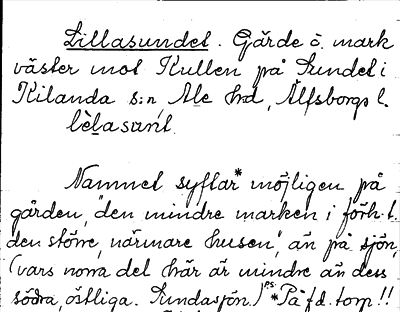 Lillasundet. Gärde o. mark
väster mot Kullen på Sundet i
Kilanda s:n, Ale hd, Älfsborgs l.
Namnet syftar* möjligen på
gården, "den mindre marken i förh. t.
den större, närmare husen", än på sjön,
(vars norra del här är mindre än dess
södra, östliga. Sundasjön.) P.S. *På f.d. torp!!